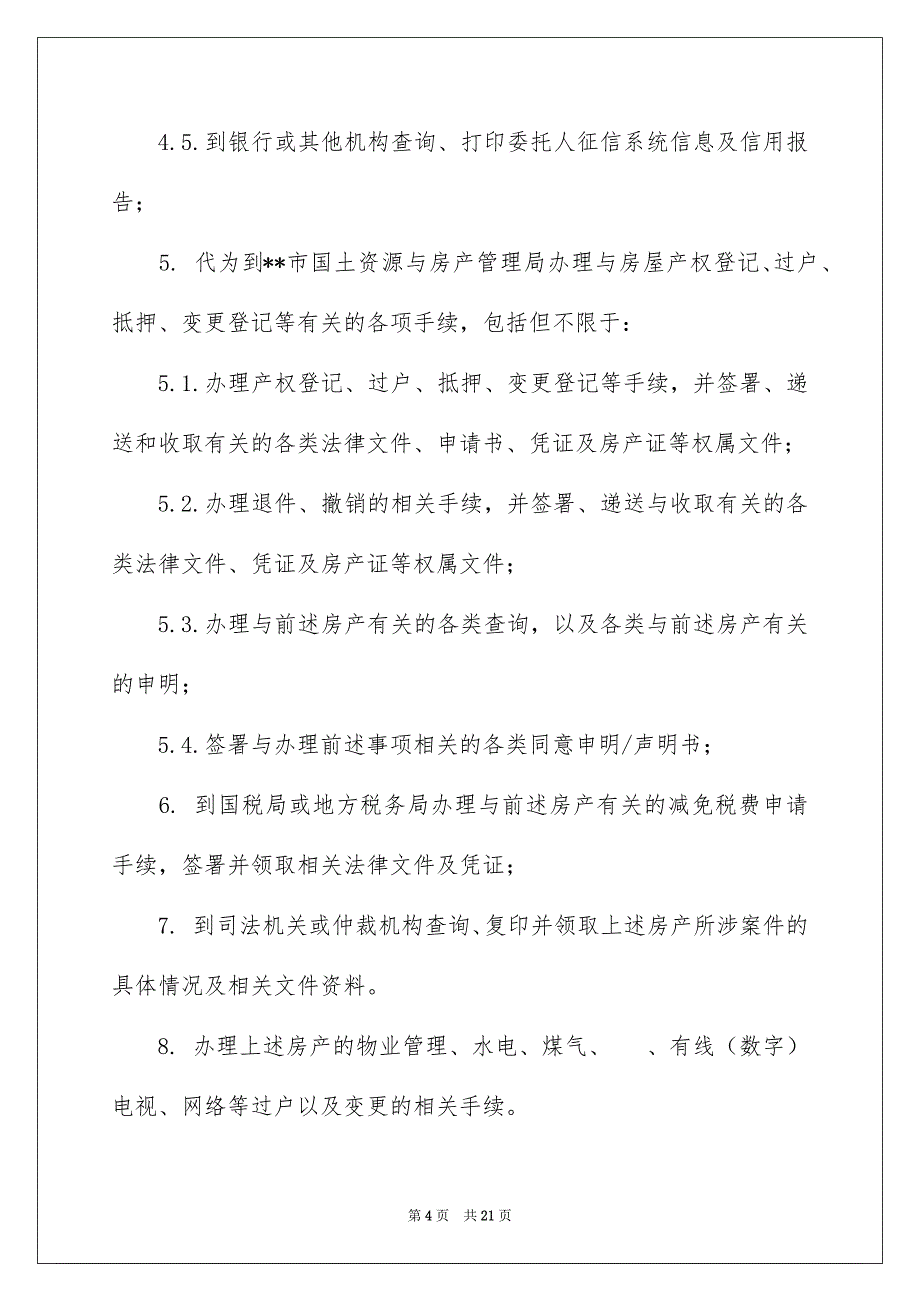 4.5.到银行或其他机构查询、打印委托人征信系统信息及信用报
告；
5. 代为到**市国土资源与房产管理局办理与房屋产权登记、过户、
抵押、变更登记等有关的各项手续，包括但不限于：
5.1.办理产权登记、过户、抵押、变更登记等手续，并签署、递
送和收取有关的各类法律文件、申请书、凭证及房产证等权属文件；
5.2.办理退件、撤销的相关手续，并签署、递送与收取有关的各
类法律文件、凭证及房产证等权属文件；
5.3.办理与前述房产有关的各类查询，以及各类与前述房产有关
的申明；
5.4.签署与办理前述事项相关的各类同意申明/声明书；
6. 到国税局或地方税务局办理与前述房产有关的减免税费申请
手续，签署并领取相关法律文件及凭证；
7. 到司法机关或仲裁机构查询、复印并领取上述房产所涉案件的
具体情况及相关文件资料。
8. 办理上述房产的物业管理、水电、煤气、　、有线（数字）
电视、网络等过户以及变更的相关手续。
第 4 页 共 21 页